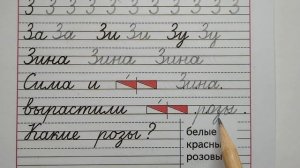 З З З З З З З З З З З
За За Зи Зи Зу Зу
Зина Зина Зина
Сима и Зина.
вырастили розы.
Какие розы?
белые
красны
розовы